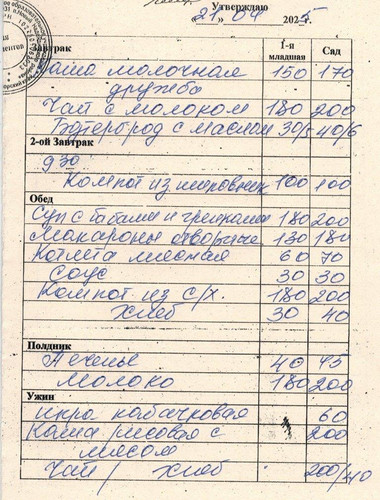 Утверждаю
«21» 04 2025
Завтрак 1-я младшая Сад
Каша молочная 150 170
дружба
Чай с молоком 180 200
Бутерброд с маслом 30/5 40/6
2-ой Завтрак
930
Компот из шиповник 100 100
Обед
Суп с бобами и гренками 180 200
Макароны отворные 130 180
Котлета мясная 60 70
соус 30 30
Компот из с/х. 180 200
хлеб 30 40
Полдник
Печенье 40 45
Молоко 180 200
Ужин
икра кабачковая 60
Каша рисовая с 200
мясом
Чай / хлеб 200/40